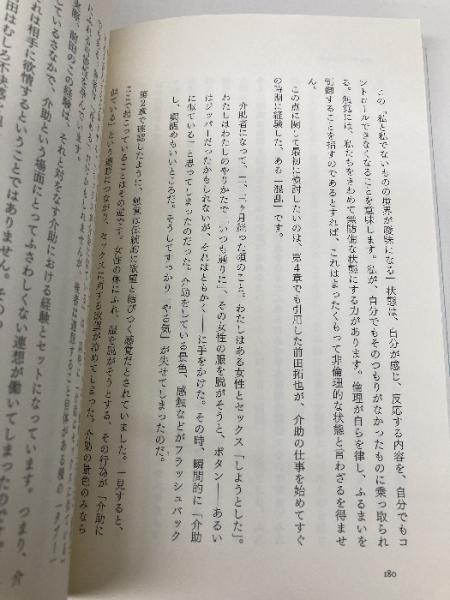 この「私と私でないものの境界が曖昧になる」状態は、自分が感じ、反応する内容を、自分でもコ
ントロールできなくなることを意味します。私が、自分でもそのつもりがなかったものに乗っ取られ
る。触覚には、私たちをきわめて無防備な状態にする力があります。倫理が自らを律し、ふるまいを
制御することを指すのであるとすれば、これはまったくもって非倫理的な状態と言わざるを得ませ
ん。
この点に関して最初に検討したいのは、第4章でも引用した前田拓也が、介助の仕事を始めてすぐ
の時期に経験した、ある「混乱」です。
介助者になって、二、三ヶ月経った頃のこと。わたしはある女性とセックス「しようとした」。
わたしはわたしのやりかたで「いつも通りに」、その女性の服を脱がそうと、ボタン――あるい
はジッパーだったかもしれないが、それはともかく――に手をかけた。その時、瞬間的に「介助
に似ている」と思ってしまったのだった。介助をしている景色、感触などがフラッシュバック
し、興醒めもいいところだ。そうしてすっかり「やる気」が失せてしまったのだ。
第2章で確認したように、触覚は伝統的に欲望と結びつく感覚だとされていました。一見すると、
ここで起こっていることはその逆です。女性の体にふれ、服を脱がそうとする、その行為が「介助に
似ている」という連想につながり、セックスに対する欲望が冷めてしまった。介助の景色のみなら
実際、前田のこの経験は、それと対をなす介助における経験とセットになっています。つまり、介
しているさなかで、介助という場面にとってふさわしくない連想が働いてしまったのです
れは相手に欲情するということではありません。
180